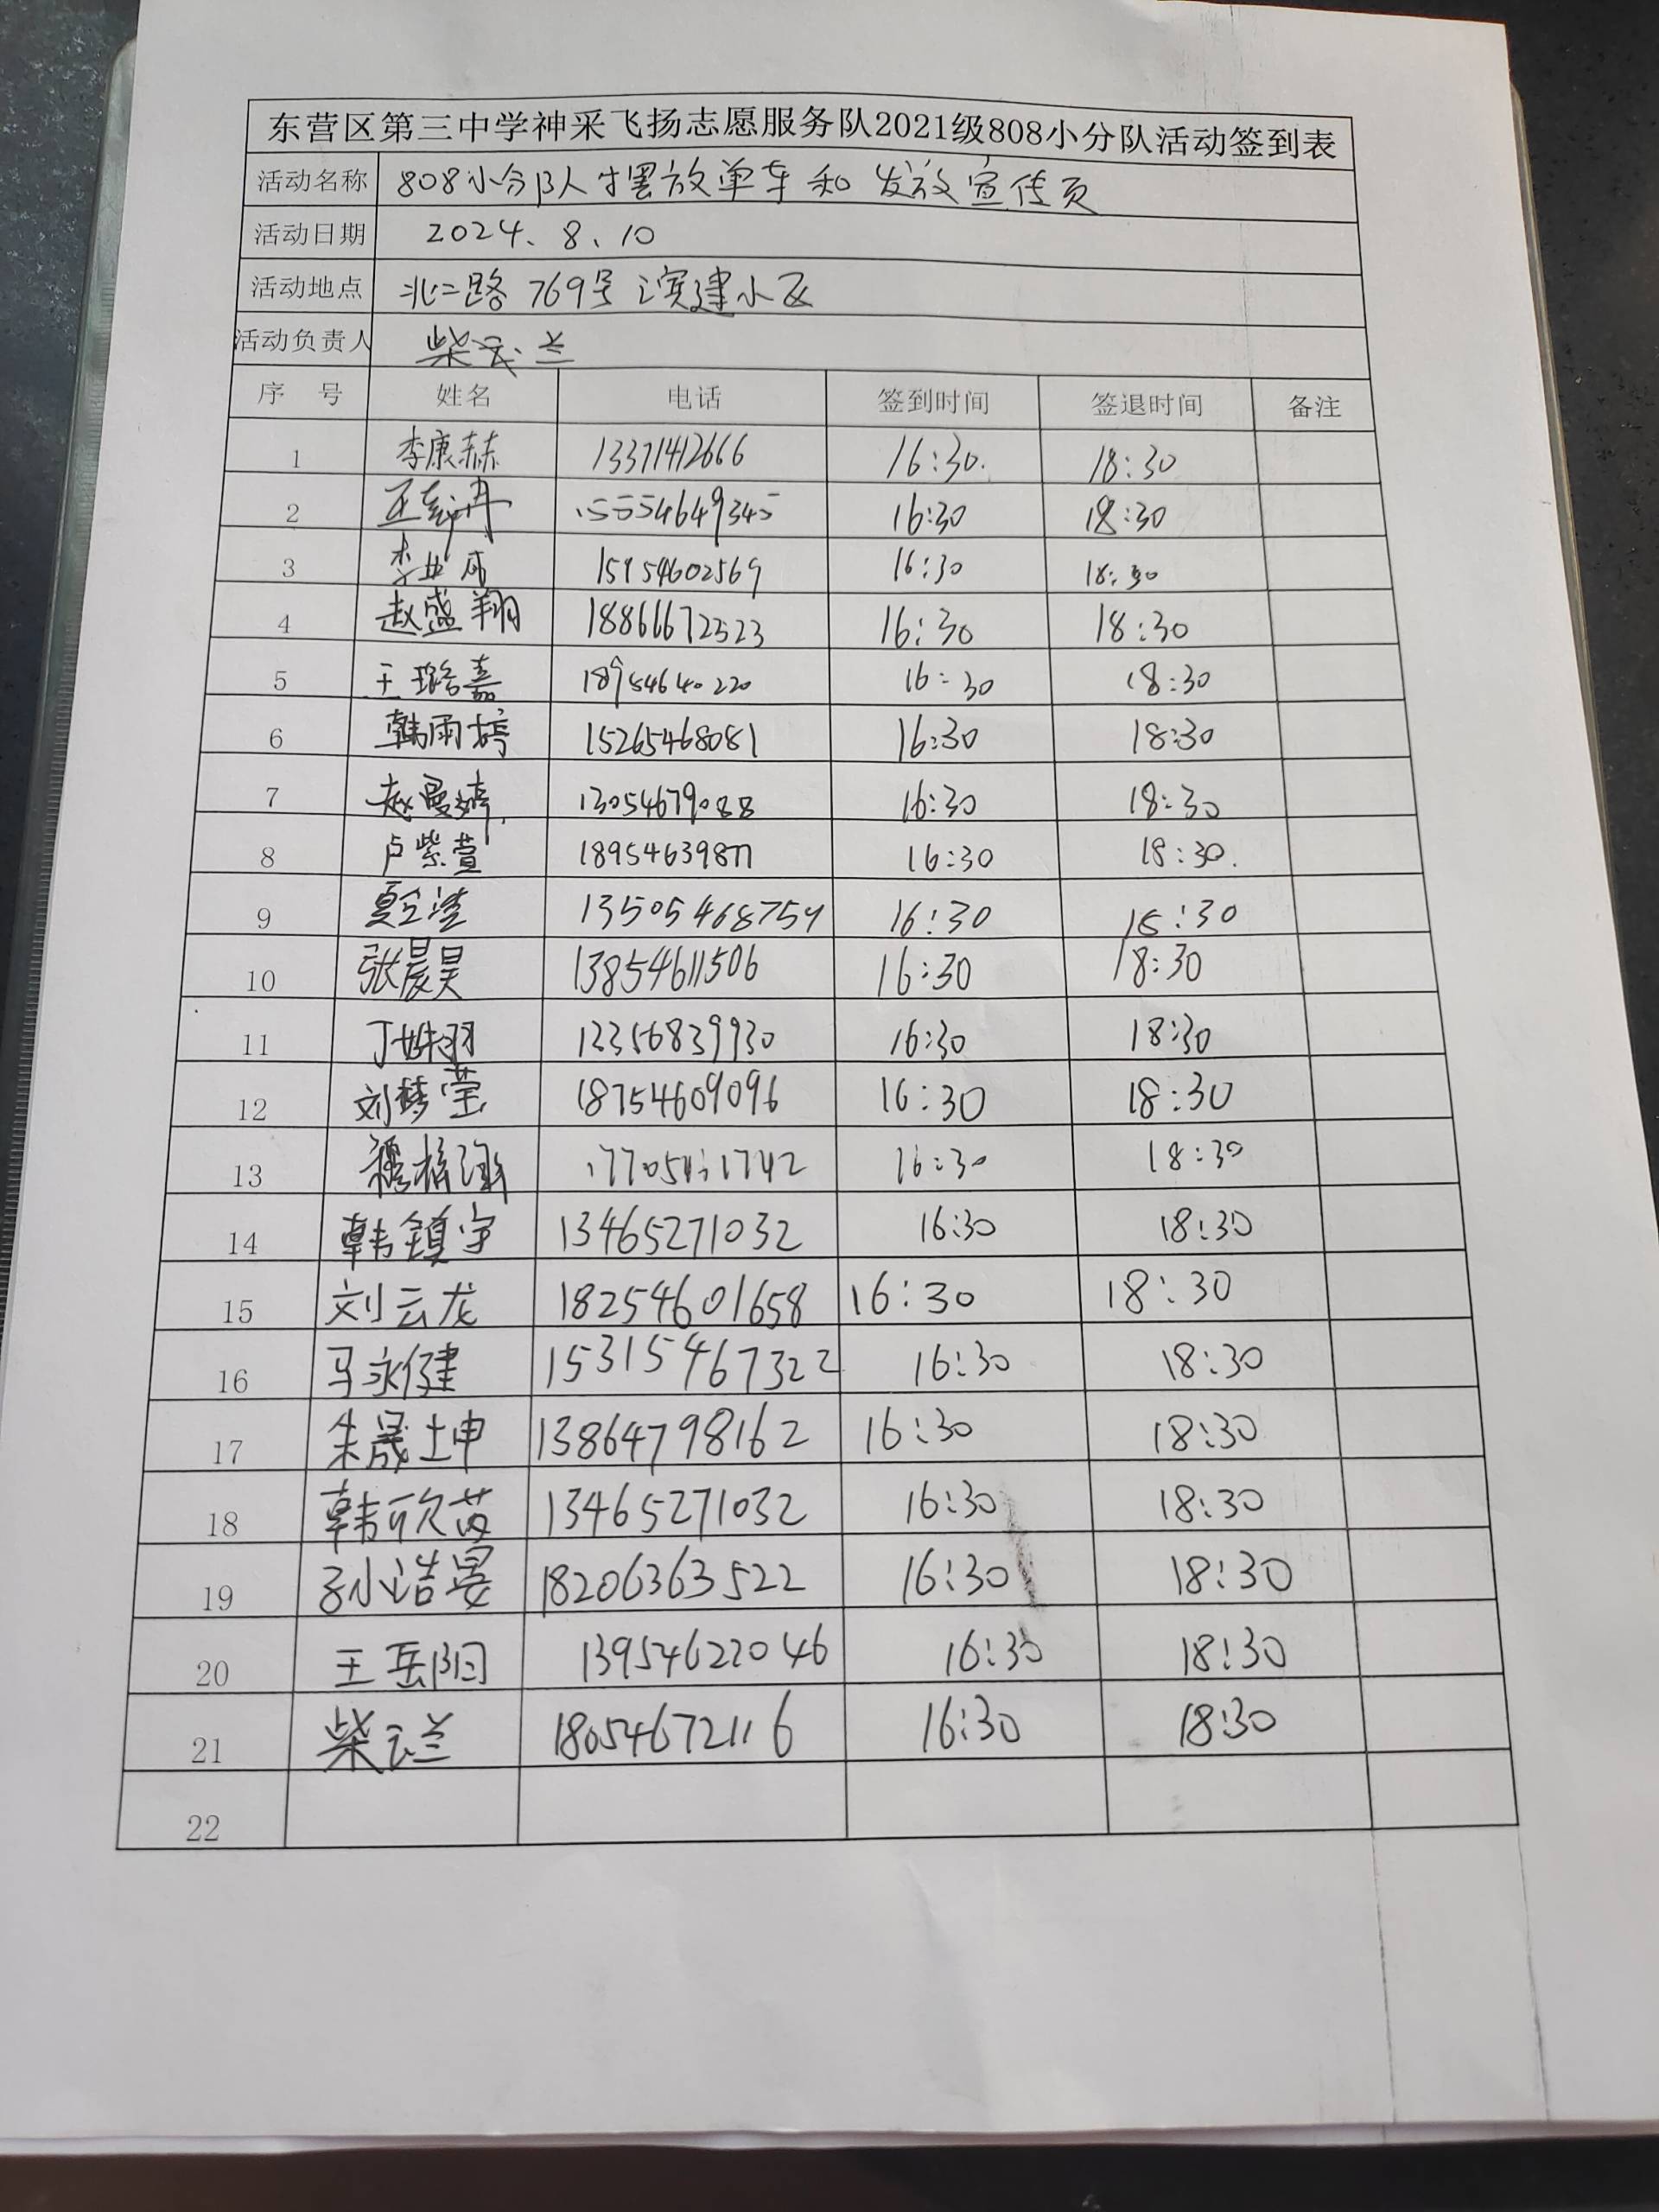 东营区第三中学神采飞扬志愿服务队2021级808小分队活动签到表
活动名称 808小分队摆放单车和发放宣传页
活动日期 2024.8.10
活动地点 北二路769号滨建小区
活动负责人 柴云兰
序 号 姓名 电话 签到时间 签退时间 备注
1 李康赫 13371412666 16:30. 18:30
2 15554649345 16:30 18:30
3 15954602569 16:30 18:30
4 赵盛翔 18866672523 16:30 18:30
5 王璐嘉 18954640220 16:30 18:30
6 韩雨婷 15265468081 16:30 18:30
7 赵曼婷 13054679088 16:30 18:30
8 卢紫萱 18954639877 16:30 18:30.
9 13505468759 16:30 18:30
10 张晨昊 13854611506 16:30 18:30
11 丁姝羽 12356839930 16:30 18:30
12 刘梦莹 18754609096 16:30 18:30
13 16:30 18:30
14 韩镇宇 13465271032 16:30 18:30
15 刘云龙 18254601658 16:30 18:30
16 马永健 15315467322 16:30 18:30
17 朱晟坤 13864798162 16:30 18:30
18 韩欣芮 13465271032 16:30 18:30
19 孙浩晏 18206363522 16:30 18:30
20 王岳阳 13954622046 16:30 18:30
21 柴云兰 18054672116 16:30 18:30
22